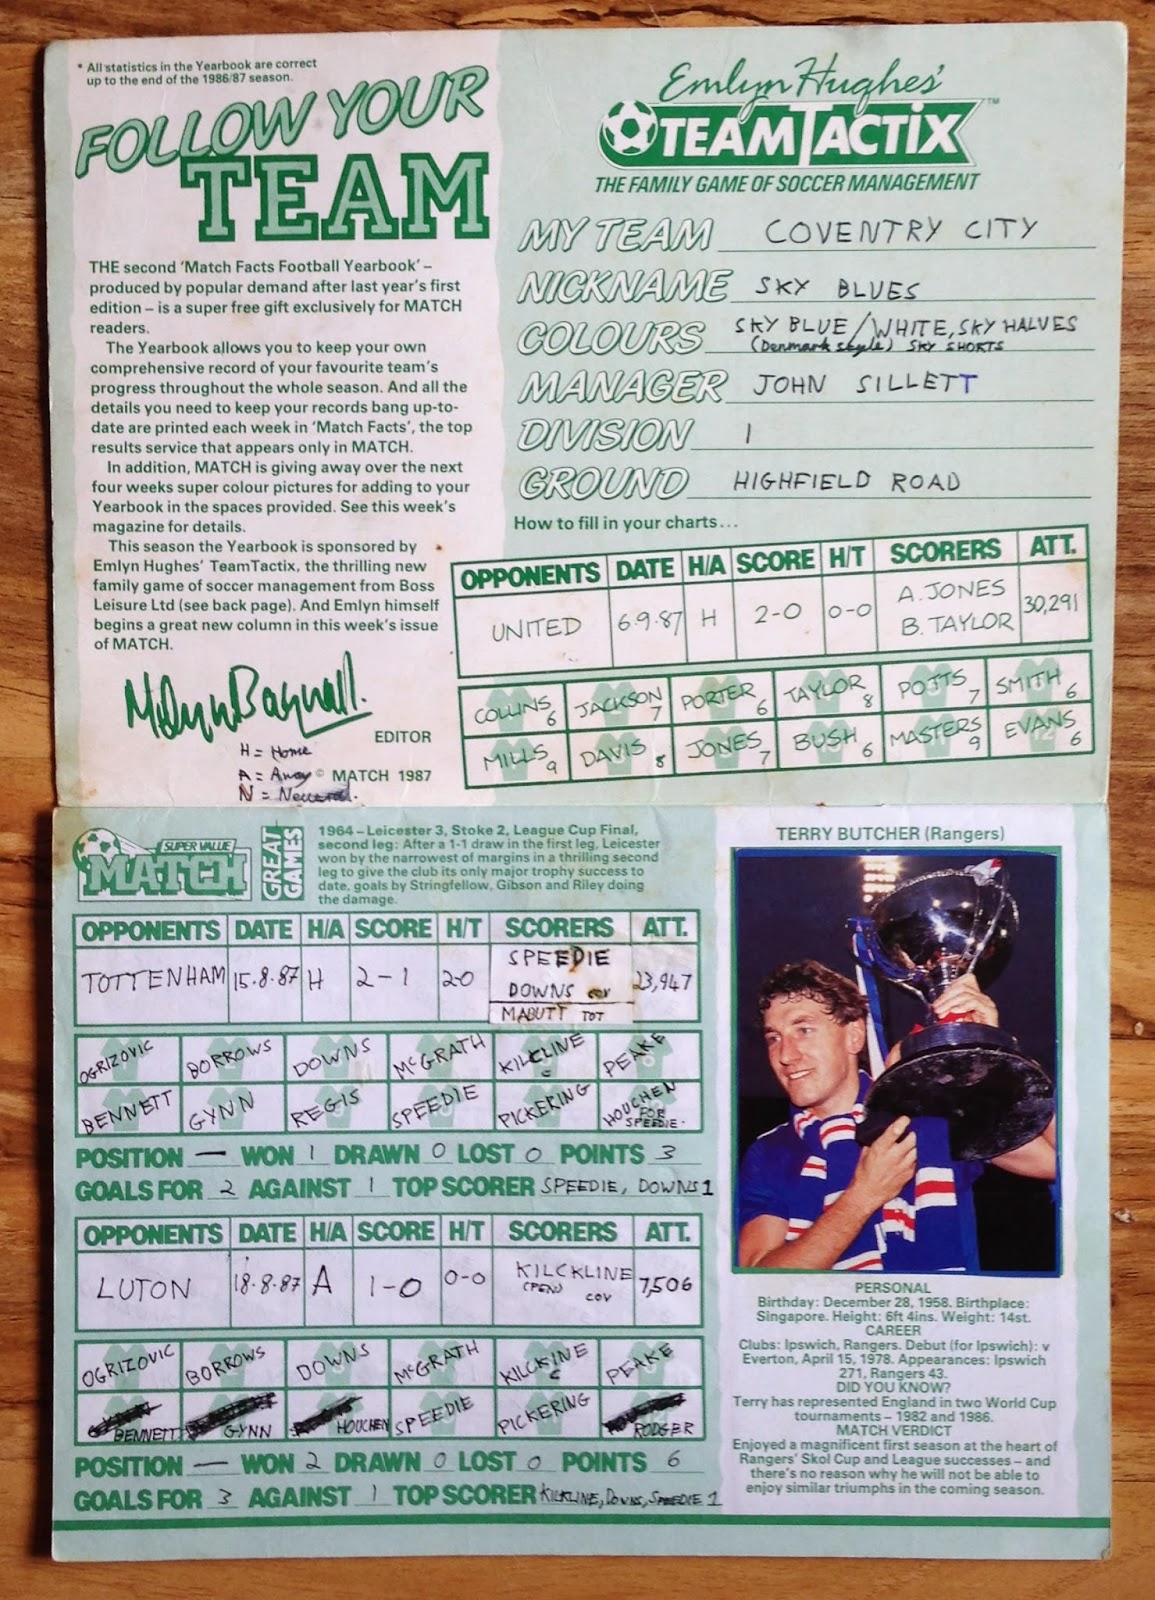 * All statistics in the Yearbook are correct
up to the end of the 1986/87 season.
FOLLOW YOUR
TEAM
THE second 'Match Facts Football Yearbook' –
produced by popular demand after last year's first
edition – is a super free gift exclusively for MATCH
readers.
The Yearbook allows you to keep your own
comprehensive record of your favourite team's
progress throughout the whole season. And all the
details you need to keep your records bang up-to-
date are printed each week in 'Match Facts', the top
results service that appears only in MATCH.
In addition, MATCH is giving away over the next
four weeks super colour pictures for adding to your
Yearbook in the spaces provided. See this week's
magazine for details.
This season the Yearbook is sponsored by
Emlyn Hughes' TeamTactix, the thrilling new
family game of soccer management from Boss
Leisure Ltd (see back page). And Emlyn himself
begins a great new column in this week's issue
of MATCH.
Melvyn Bagnall.
EDITOR
H = Home
A = Away © MATCH 1987
N = Neutral.
Emlyn Hughes'
TEAMTACTIX™
THE FAMILY GAME OF SOCCER MANAGEMENT
MY TEAM COVENTRY CITY
NICKNAME SKY BLUES
COLOURS SKY BLUE/WHITE, SKY HALVES
(Denmark style) SKY SHORTS
MANAGER JOHN SILLETT
DIVISION 1
GROUND HIGHFIELD ROAD
How to fill in your charts...
OPPONENTS DATE H/A SCORE H/T SCORERS ATT.
UNITED 6.9.87 H 2-0 0-0 A. JONES B. TAYLOR 30,291
COLLINS 6 JACKSON 7 PORTER 6 TAYLOR 8 POTTS 7 SMITH 6
MILLS 9 DAVIS 8 JONES 7 BUSH 6 MASTERS 9 EVANS 6
SUPER VALUE
MATCH
GREAT GAMES
1964 – Leicester 3, Stoke 2, League Cup Final,
second leg: After a 1-1 draw in the first leg, Leicester
won by the narrowest of margins in a thrilling second
leg to give the club its only major trophy success to
date, goals by Stringfellow, Gibson and Riley doing
the damage.
OPPONENTS DATE H/A SCORE H/T SCORERS ATT.
TOTTENHAM 15.8.87 H 2-1 2-0 SPEEDIE DOWNS COV MABUTT TOT 23,947
OGRIZOVIC BORROWS DOWNS McGRATH KILCLINE C PEAKE
BENNETT GYNN REGIS SPEEDIE PICKERING HOUCHEN FOR SPEEDIE.
POSITION — WON 1 DRAWN 0 LOST 0 POINTS 3
GOALS FOR 2 AGAINST 1 TOP SCORER SPEEDIE, DOWNS 1
OPPONENTS DATE H/A SCORE H/T SCORERS ATT.
LUTON 18.8.87 A 1-0 0-0 KILCKLINE (PEN) COV 7,506
OGRIZOVIC BORROWS DOWNS McGRATH KILCKINE C PEAKE
BENNETT GYNN HOUCHEN SPEEDIE PICKERING RODGER
POSITION — WON 2 DRAWN 0 LOST 0 POINTS 6
GOALS FOR 3 AGAINST 1 TOP SCORER KILKLINE, DOWNS, SPEEDIE 1
TERRY BUTCHER (Rangers)
PERSONAL
Birthday: December 28, 1958. Birthplace:
Singapore. Height: 6ft 4ins. Weight: 14st.
CAREER
Clubs: Ipswich, Rangers. Debut (for Ipswich): v
Everton, April 15, 1978. Appearances: Ipswich
271, Rangers 43.
DID YOU KNOW?
Terry has represented England in two World Cup
tournaments – 1982 and 1986.
MATCH VERDICT
Enjoyed a magnificent first season at the heart of
Rangers' Skol Cup and League successes – and
there's no reason why he will not be able to
enjoy similar triumphs in the coming season.